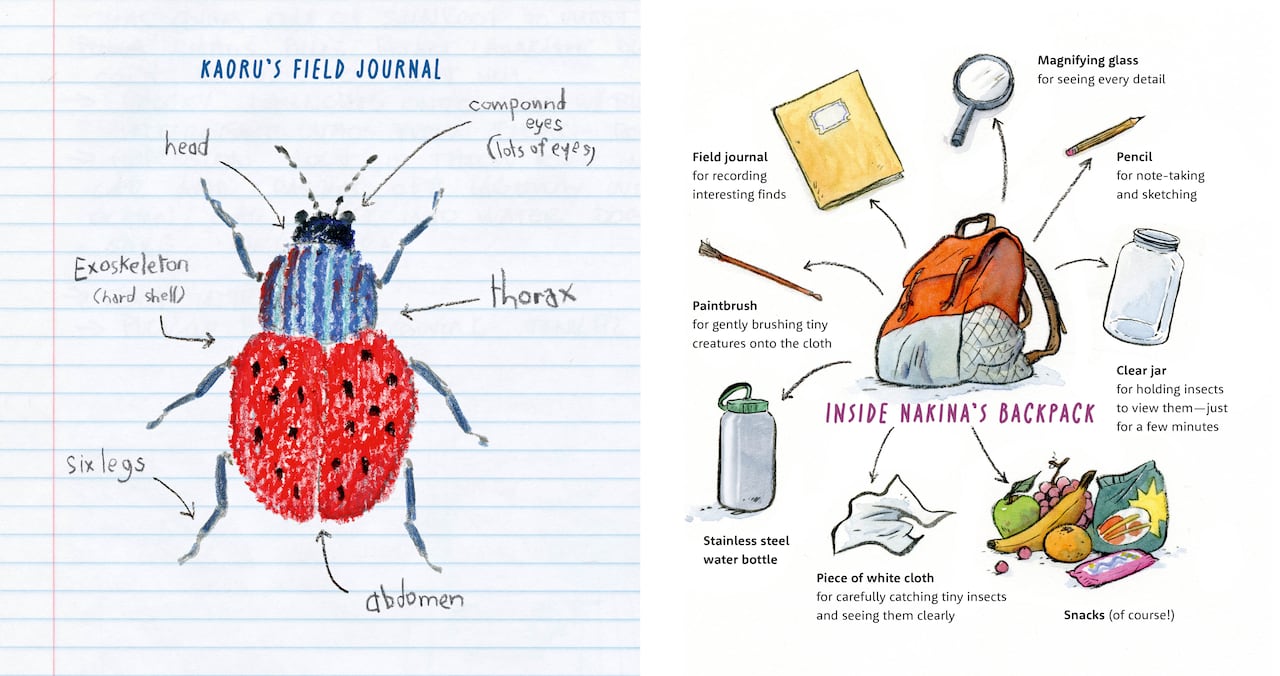 KAORU'S FIELD JOURNAL
compound
eyes
(lots of eyes)
head
Exoskeleton
(hard shell)
thorax
six legs
abdomen
Magnifying glass
for seeing every detail
Field journal
for recording
interesting finds
Pencil
for note-taking
and sketching
Paintbrush
for gently brushing tiny
creatures onto the cloth
Clear jar
for holding insects
to view them—just
for a few minutes
INSIDE NAKINA'S BACKPACK
Stainless steel
water bottle
Piece of white cloth
for carefully catching tiny insects
and seeing them clearly
Snacks (of course!)